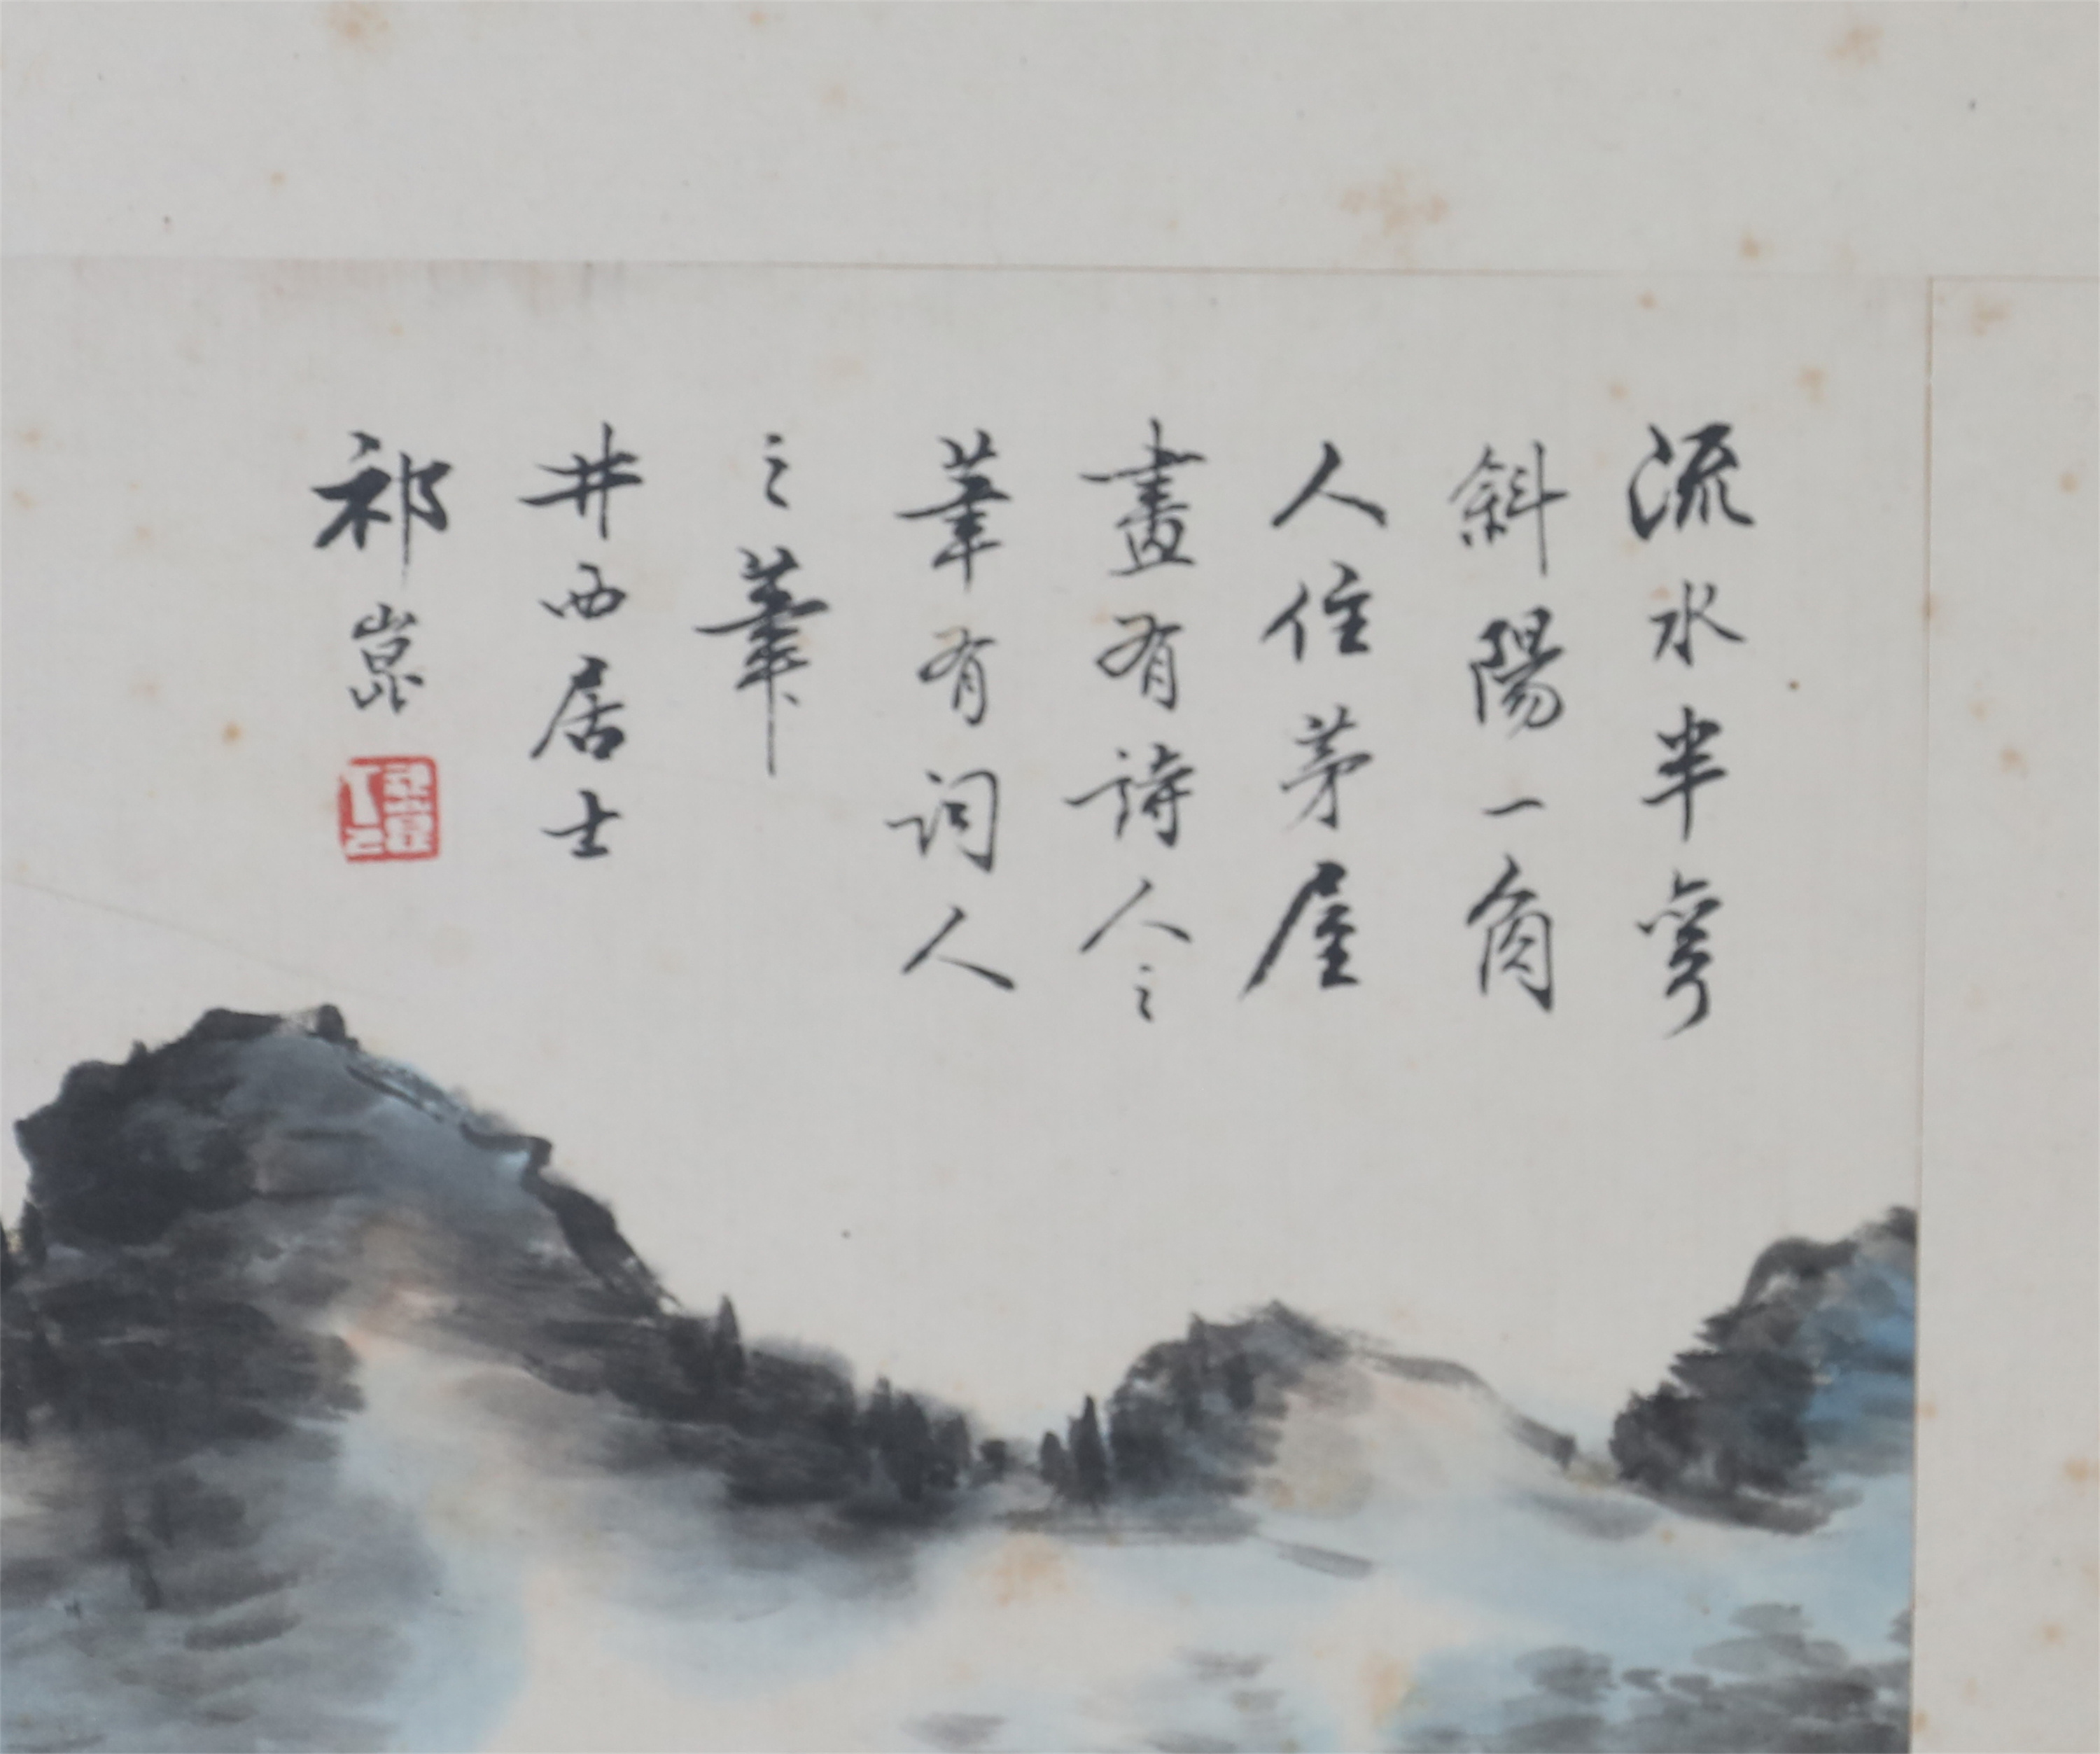 流水半彎
斜陽一角
人住茅屋
畫有詩人之
筆有詞人
之筆
井西居士
祁崑
祁崑